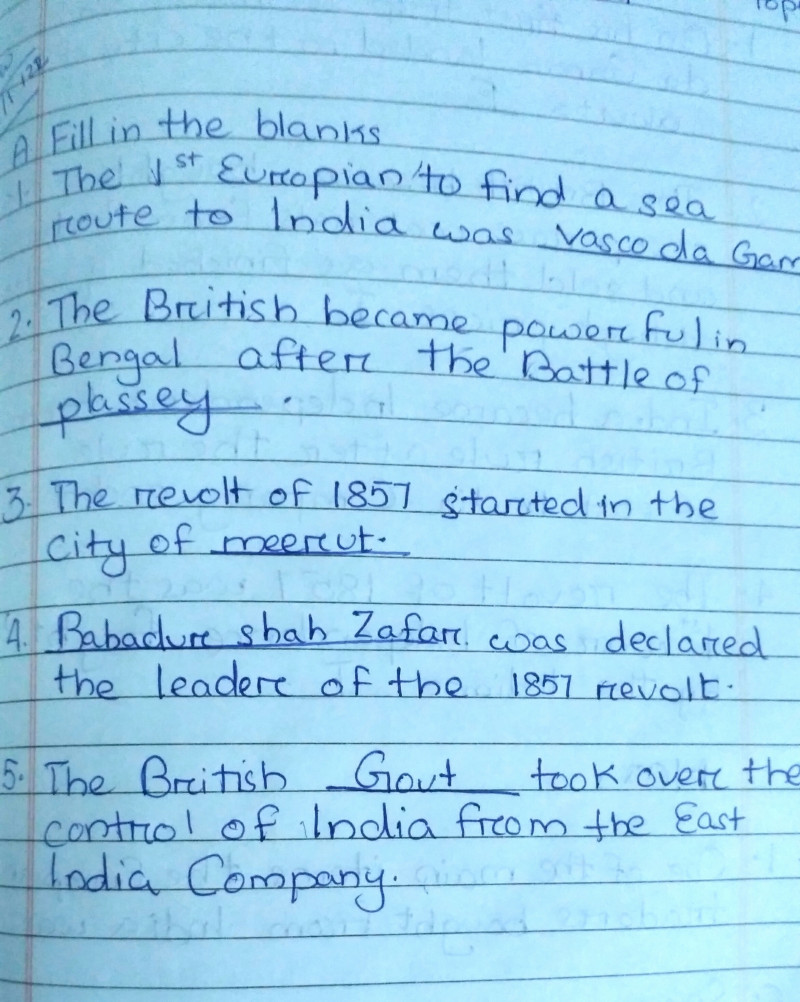 A. Fill in the blanks
1. The 1st Europian to find a sea
route to India was Vasco da Gam
2. The British became powerful in
Bengal after the Battle of
plassey.
3. The revolt of 1857 started in the
city of meerut.
4. Bahadur shah Zafar was declared
the leader of the 1857 revolt.
5. The British Govt took over the
control of India from the East
India Company.